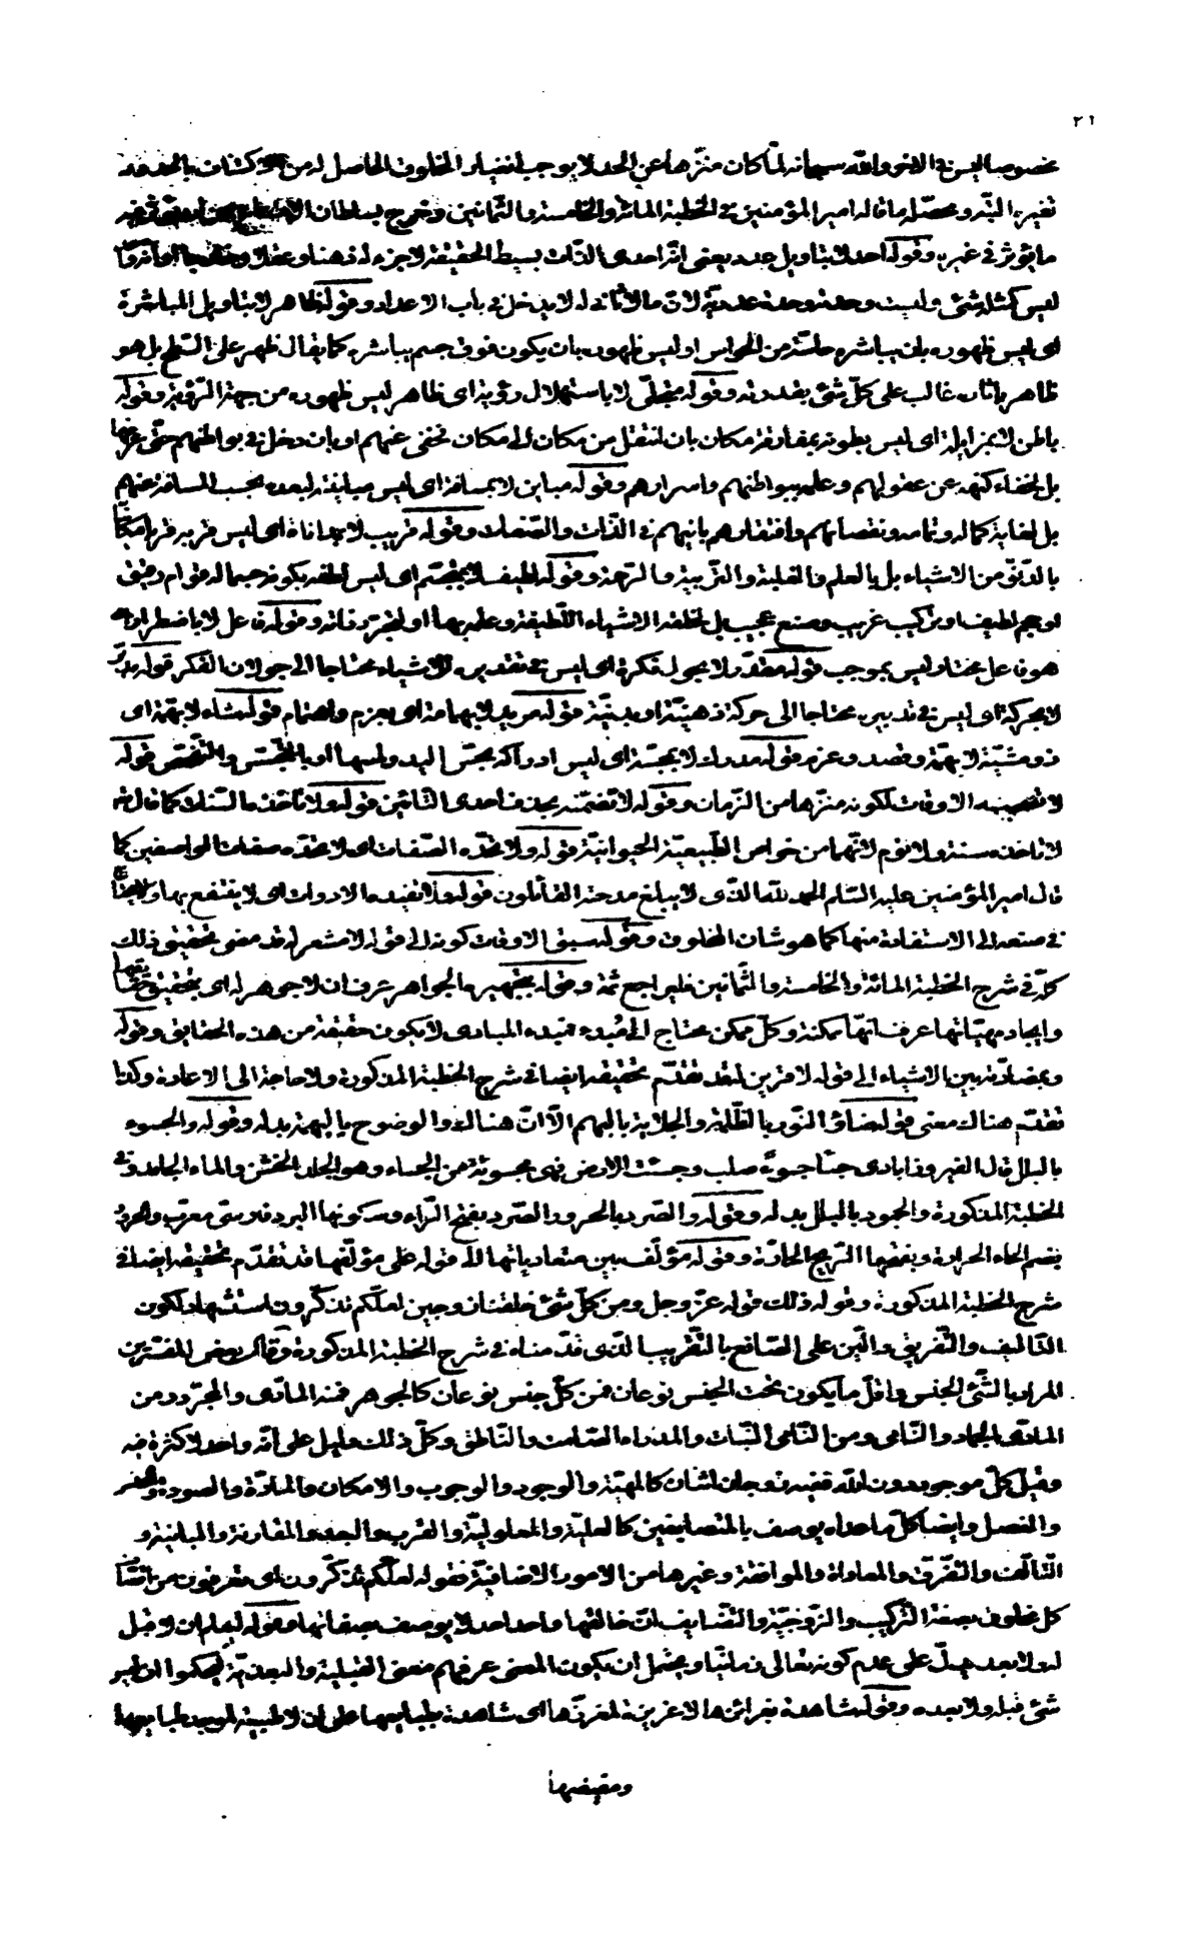 ٢١
ليس في الاخر والله سبحانه لمّا كان منزّها عن الحد لا يوجب الحاصل له من
تغيره البتّه ومحصّل ما قاله امير المؤمنين في الخطبة المائة والخامسة والثّمانين وخرج بسلطان
ما يؤثر في غيره وقوله احد لا بتاويل عدد يعنى انّه احدى الذّات بسيط الحقيقة لا جزء له ذهنا وعقلا
ليس كمثله شئ وليست وحدته وحدة عدديّة لانّ ما لا ثانى له لا يدخل في باب الاعداد وقوله ظاهر لا بتاويل المباشرة
اى ليس ظهوره بان يباشره حاسّة من الحواس او ليس ظهوره بان يكون فوق جسم يباشره كما يقال ظهر على السّطح بل هو
ظاهر باثاره غالب على كلّ شئ بقدرته وقوله متجلّى لا باستهلال رؤية اى ظاهر ليس ظهوره من جهة الرّؤية وقوله
باطن لا بمزايلة اى ليس بطونه بمفارقة مكان بان انتقل من مكان الى مكان خفى عنهم او بان دخل في بواطنهم حتّى عرفها
بل لخفاء كنهه عن عقولهم وعلمه ببواطنهم واسرارهم وقوله مباين لا بمسافة اى ليس مباينته لبعده بحسب المسافة عنهم
بل لغاية كماله وتمامه ونقصانهم وافتقارهم باينهم في الذّات والصّفات وقوله قريب لا بمداناة اى ليس قربه قربا مكانيّا
بالدّنوّ من الاشياء بل بالعلم والعلية والتّربية والرّحمة وقوله لطيف لا بتجسّم اى ليس لطفه بكونه جسما له قوام رقيق
او حجم لطيف او تركيب غريب وصنع عجيب بل لخلقه الاشياء اللّطيفة وعلمه بها او لتجرّد ذاته وقوله فاعل لا باضطرار اى
هو فاعل مختار ليس بموجب قوله مقدّر لا بجول فكرة اى ليس في تقديره للاشياء محتاجا الى جولان الفكر قوله مدبّر
لا بحركة اى ليس في تدبيره محتاجا الى حركة ذهنيّة او بدنيّة قوله مريد لا بهمامة اى بعزم واهتمام قوله شاء لا بهمّة اى
ذو مشيّة لا بهمّة وقصد وعزم قوله مدرك لا بمجسّة اى ليس ادراكه بمجسّ اليد ولمسها او بالتّجسّس والتّفحّص قوله
لا تصحبه الاوقات لكونه منزّها من الزّمان وقوله لا تضمّنه بحذف احدى التّائين قوله ولا تاخذه السّنات كما قال
لا تاخذه سنة ولا نوم لانّهما من خواص الطّبيعيّة الحيوانيّة قوله ولا تحدّه الصّفات اى لا تحدّه صفات الواصفين كما
قال امير المؤمنين عليه السّلام الحمد لله الّذى لا يبلغ مدحته القائلون قوله ولا تفيده الادوات اى لا ينتفع بها
في صنعه الى الاستفادة منها كما هو شان المخلوق وقوله سبق الاوقات كونه الى قوله لا مشعر له قد مضى تحقيق ذلك
كلّه في شرح الخطبة المائة والخامسة والثّمانين فليراجع ثمّة وقوله بتجهيره الجواهر عرف ان لا جوهر له اى بتحقيق حقائقها
وايجاد مهيّاتها عرف انّها ممكنة وكلّ ممكن محتاج الى مبدء فمبدء المبادى لا يكون حقيقة من هذه الحقايق وقوله
وبمضادّته بين الاشياء الى قوله لا قرين له قد تقدّم تحقيقه ايضا في شرح الخطبة المذكورة ولا حاجة الى الاعادة وكذا
تقدّم هناك معنى قوله ضادّ النّور بالظّلمة والجلاية بالبهم الّا انّ هناك والوضوح بالبهمة بدله وقوله والجسوء
بالبلل قال الفيروزابادى جسا جسوءً صلب وجسئت الارض فهى مجسوئة من الجساء وهو الجلد الخشن والماء الجامد وفي
الخطبة المذكورة والجمود بالبلل بدله وقوله والصّرد بالحرور الصّرد بفتح الرّاء وسكونها البرد فارسى معرّب والحرور
بضم الحاء الحرارة وبفتحها الرّيح الحارّة وقوله مؤلّف بين متعادياتها الى قوله على مؤلّفها قد تقدّم تحقيقه ايضا في
شرح الخطبة المذكورة وقوله ذلك قوله عزّ وجل ومن كلّ شئ خلقنا زوجين لعلّكم تذكّرون استشهاد لكون
التّاليف والتّفريق دالّين على الصّانع بالتّقريب الّذى قدّمناه في شرح الخطبة المذكورة وقال بعض المفسّرين
المراد بالشّئ الجنس واقلّ ما يكون تحت الجنس نوعان فمن كلّ جنس نوعان كالجوهر فمنه المادّى والمجرّد ومن
المادّى الجماد والنّامى ومن النّامى النّبات والمدرك الصّامت والنّاطق وكلّ ذلك دليل على انّه واحد لا كثرة فيه
وقيل كلّ موجود دون الله ففيه زوجان اثنان كالمهيّة والوجود والوجوب والامكان والمادّة والصورة والجنس
والفصل وايضا كلّ ما عداه يوصف بالمتضايفين كالعليّة والمعلوليّة والقرب والبعد والمقارنة والمباينة و
التّالّف والتّفرّق والمعاداة والموافقة وغيرها من الامور الاضافيّة فقوله لعلّكم تذكّرون اى تعرفون من
كل مخلوق بصفة التّركيب والزّوجيّة والتّضايف انّ خالقها واحد احد لا يوصف بصفاتها وقوله ليعلم ان لا قبل
له ولا بعد يدلّ على عدم كونه تعالى زمانيّا ويحتمل ان يكون المعنى عرفهم معنى القبلية والبعديّة ليحكموا ان ليس
شئ قبله ولا بعده وقوله شاهدة بغرائزها ان لا غريزة لمغرزها اى شاهدة بطبايعها على ان لا طبيعة لموجد طبايعها
ومفيضها